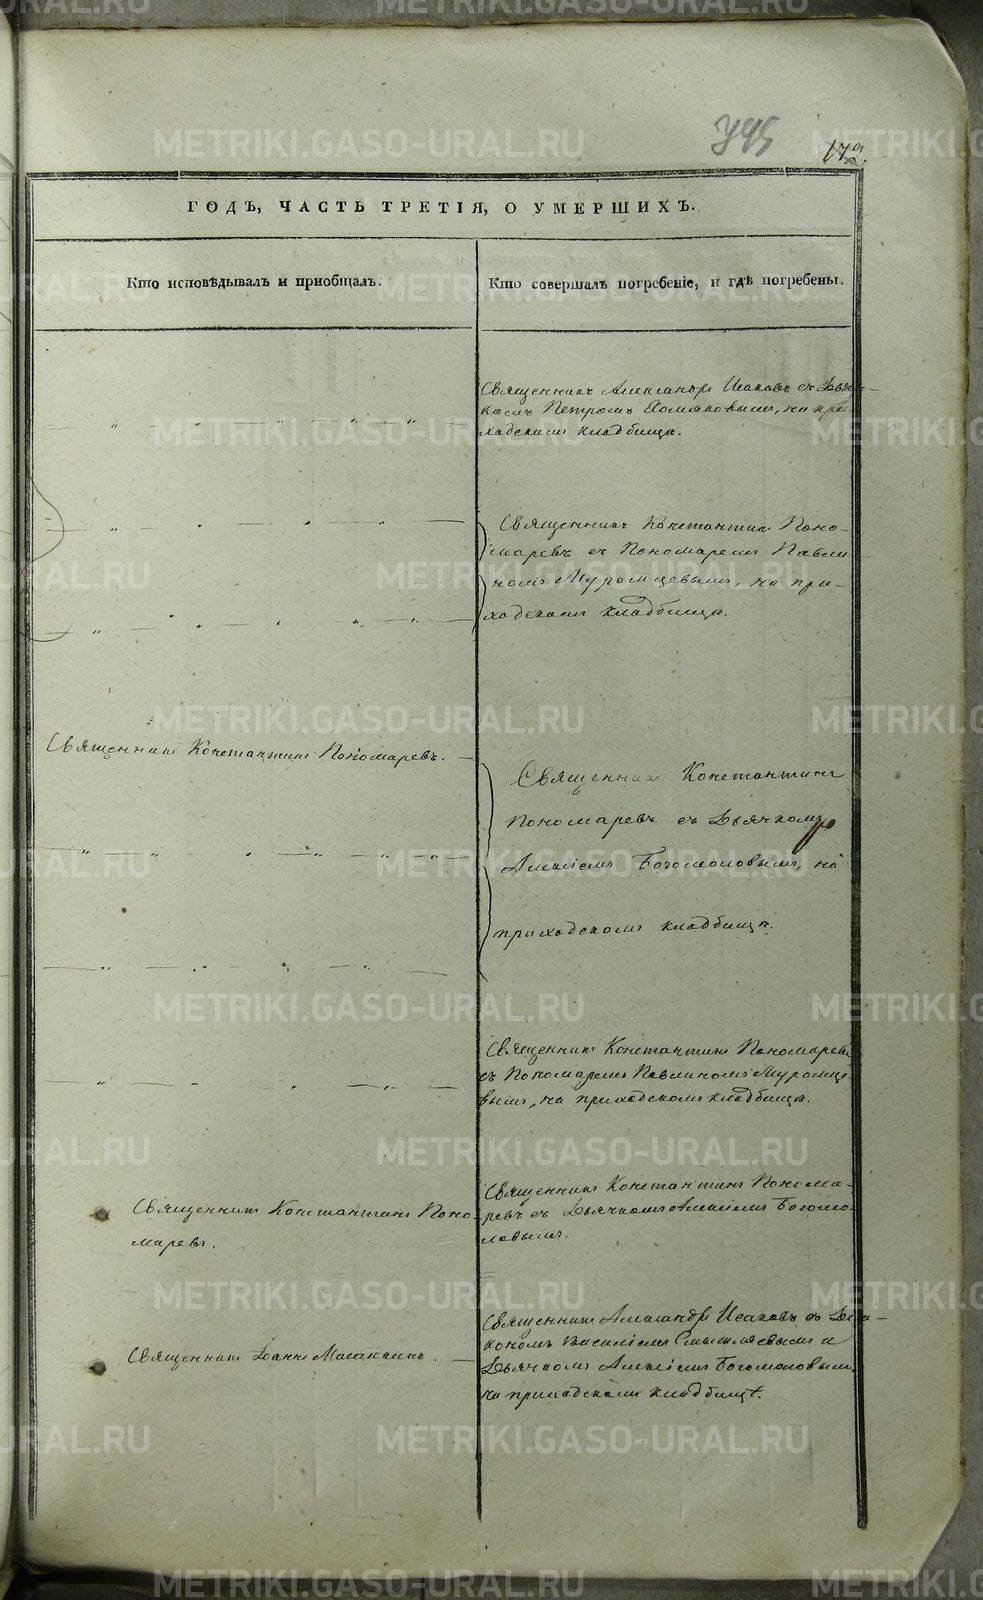 745
172.
ГОДЪ, ЧАСТЬ ТРЕТІЯ, О УМЕРШИХЪ.
Кто исповѣдывалъ и пріобщалъ.
Кто совершалъ погребеніе, и гдѣ погребены.
Священникъ Александръ Исаковъ съ Дьяч-
комъ Петромъ Хомяковымъ, на при-
ходскомъ кладбищѣ.
Священникъ Константинъ Поно-
маревъ съ Пономаремъ Павли
номъ Муромцевымъ, на при-
ходскомъ кладбищѣ.
Священникъ Константинъ Пономаревъ.
Священникъ Константинъ
Пономаревъ съ Дьячкомъ
Алексіемъ Богомоловымъ, на
приходскомъ кладбищѣ.
Священникъ Константинъ Пономаревъ
съ Пономаремъ Павлиномъ Муромце-
вымъ, на приходскомъ кладбищѣ.
Священникъ Константинъ Поно-
маревъ.
Священникъ Константинъ Понома-
ревъ съ Дьячкомъ Алексіемъ Богомо-
ловымъ.
Священникъ Іоаннъ
Священникъ Александръ Исаковъ съ Діа-
кономъ Василіемъ Смышляевымъ и
Дьячкомъ Алексіемъ Богомоловымъ
на приходскомъ кладбищѣ.
METRIKI.GASO-URAL.RU